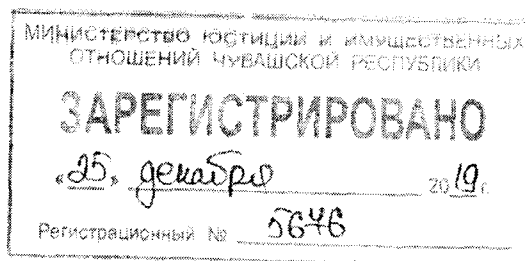 МИНИСТЕРСТВО ЮСТИЦИИ И ИМУЩЕСТВЕННЫХ
ОТНОШЕНИЙ ЧУВАШСКОЙ РЕСПУБЛИКИ
ЗАРЕГИСТРИРОВАНО
«25» декабря 2019 г.
Регистрационный № 5676